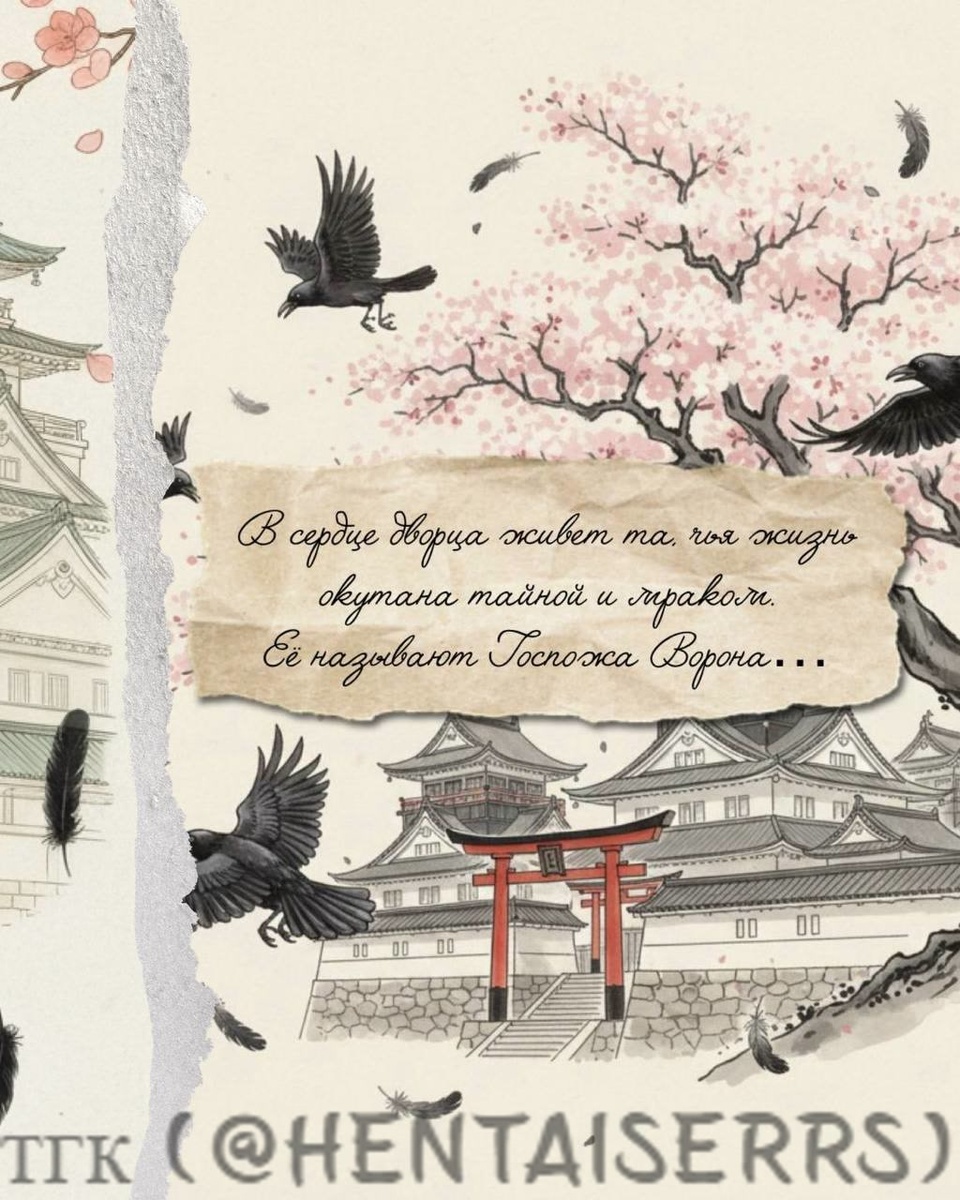 В сердце дворца живет та, чья жизнь
окутана тайной и мраком.
Её называют Госпожа Ворона...
ТГК (@HENTAISERRS)